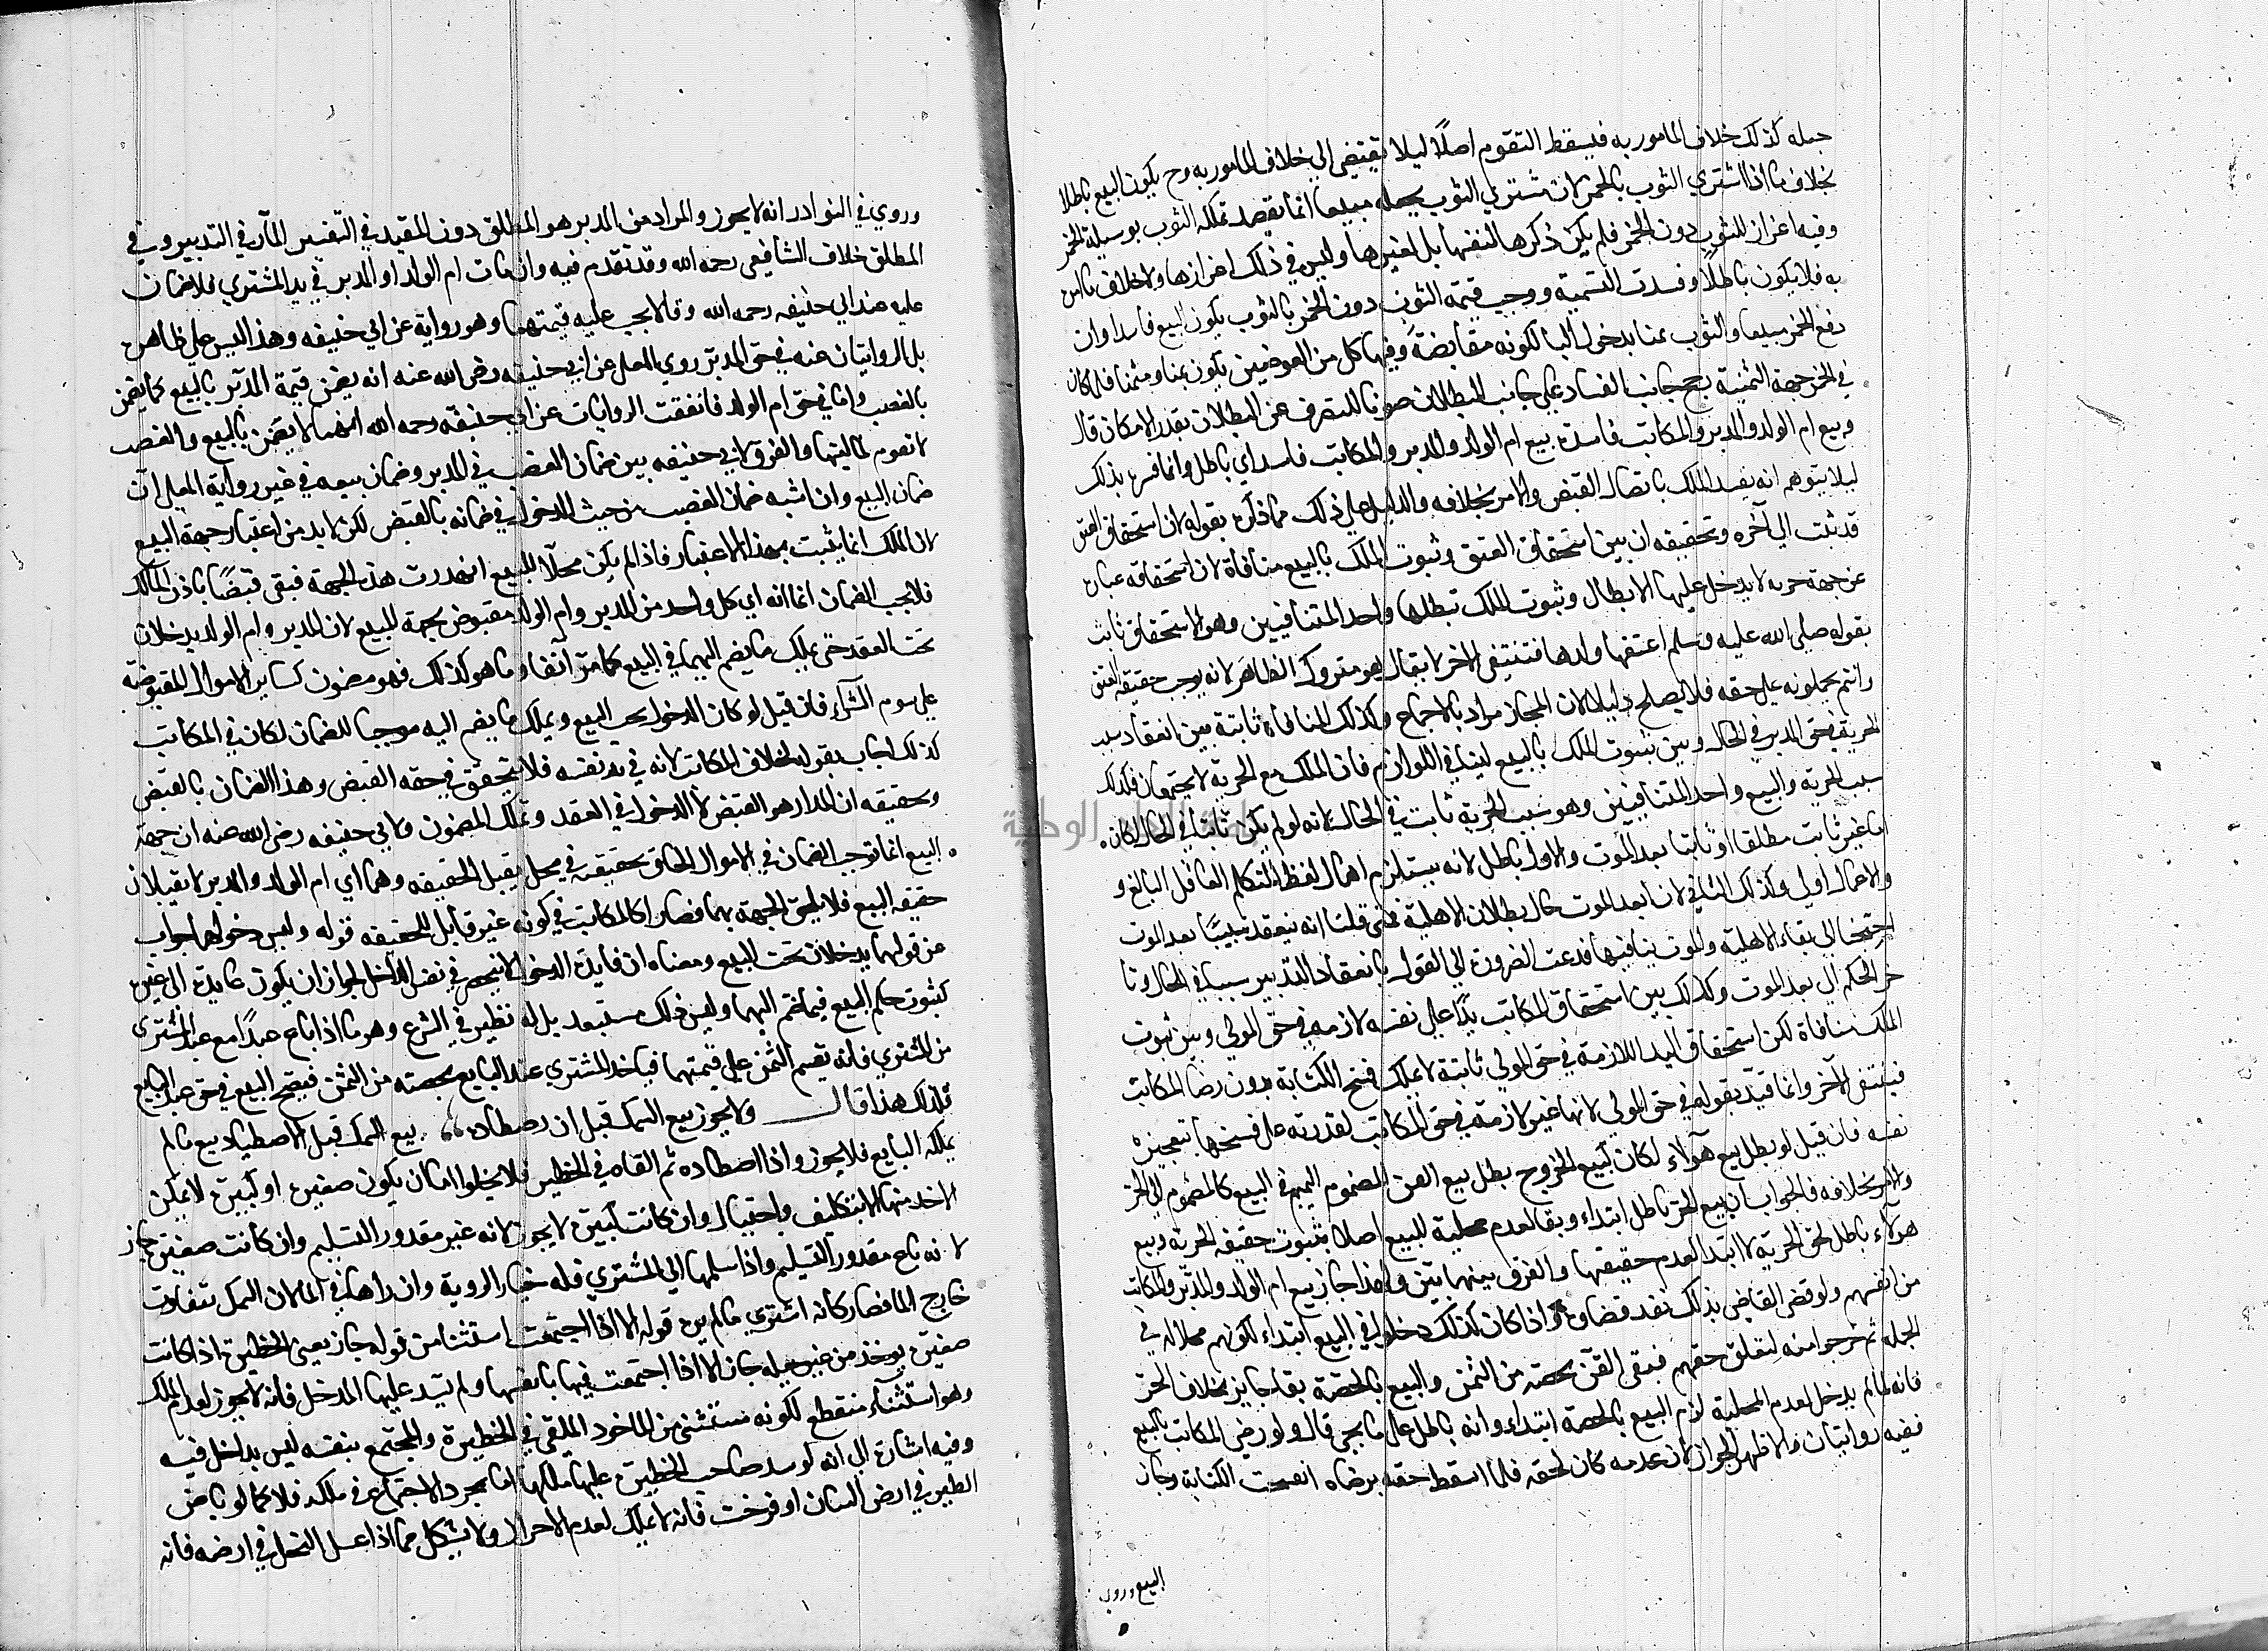 حمله كذلك خلاف المامور به فيسقط التقوم اصلًا ليلا يقتضي الي خلاف المامور به وح يكون البيع باطلا
بخلاف ما اذا اشتري الثوب بالخمر لان مشتري الثوب يجعله مبيعا انما يقصد تملك الثوب بوسيلة الخمر
وفيه اعزاز للثوب دون الخمر فلم يكن ذكرها لنفسها بل لغيرها وليس في ذلك اعزازها ولا خلاف ما امر
به فلا يكون باطلًا وفسدت التسمية ووجب قيمة الثوب دون الخمر بالثوب يكون البيع فاسدا وان
دفع الخمر مبيعا والثوب ثمنا بدخول البا لكونه مقايضةً وفيها كل من العوضين يكون ثمنا ومثمنا فلما كان
في الخمر جهة الثمنية رجح جانب الفساد علي جانب البطلان صونا للتصرف عن البطلان بقدر الامكان قال
وبيع ام الولد والمدبر والمكاتب فاسد بيع ام الولد والمدبر والمكاتب فاسد اي باطل وانما فسره بذلك
ليلا يتوهم انه يفيد الملك باتصال القبض والامر بخلافه والدليل علي ذلك ما ذكره بقوله لان استحقاق العتق
قد ثبت الي آخره وتحقيقه ان بين استحقاق العتق وثبوت الملك بالبيع منافاة لان استحقاقه عبارة
عن جهة حريه لا يدخل عليها الابطال وثبوت الملك تبطلها واحد المتنافيين وهو الاستحقاق ثابت
بقوله صلي الله عليه وسلم اعتقها ولدها فتنتفي الاخر لا يقال هو متروك الظاهر لانه يوجب حقيقة العتق
وانتم يحملونه علي حقه فلا يصلح دليلا لان المجاز مراد بالاجماع وكذلك المنافاة ثابتة بين انعقاد سبب
الحرية في حق المدبر في الحال وبين ثبوت الملك بالبيع لتنافي اللوازم فان الملك مع الحرية لا يجتمعان فكذلك
سبب الحرية والبيع واحد المتنافيين وهو سبب الحرية ثابت في الحال لانه لو لم يكن ثابتا في الحال لكان
اما غير ثابت مطلقا او ثابتا بعد الموت والاول باطل لانه يستلزم اهمال لفظ المتكلم العاقل البالغ و
والاعمال اولي وكذلك الثاني لان بعد الموت حال بطلان الاهلية فمتي قلنا انه ينعقد سببًا بعد الموت
احتجنا الي بقاء الاهلية والموت ينافيها فدعت الضرورة الي القول بانعقاد التدبير سببا في الحال وتا
خر الحكم الي بعد الموت وكذلك بين استحقاق المكاتب يدًا علي نفسه لازمه في حق المولي وبين ثبوت
الملك منافاة لكن استحقاق اليد اللازمة في حق المولي ثابتة لا يملك فسخ الكتابة بدون رضا المكاتب
فينتفي الآخر وانما قيد بقوله في حق المولي لانها غير لازمة في حق المكاتب لقدرته علي فسخها بتعجيزه
نفسه فان قيل لو بطل بيع هؤلاء لكان كبيع الحر وح بطل بيع القن المضموم اليهم في البيع كالمضموم الي الحر
والامر بخلافه فالجواب ان بيع الحر باطل ابتداء وبقا لعدم محلية للبيع اصلا بثبوت حقيقة الحرية وبيع
هولاء باطل لحق الحرية لا ابتدا لعدم حقيقتها والفرق بينهما بين ولهذا جاز بيع ام الولد والمدبر والمكاتب
من انفسهم ولو قضي القاضي بذلك نفذ قضاؤه واذا كان كذلك دخلوا في البيع ابتداء لكونهم محلا له في
الجملة ثم خرجوا منه لتعلق حقهم فبقي القن بحصته من الثمن والبيع بالحصة بقا جايز بخلاف الحر
فانه لما لم يدخل لعدم المحلية لزم البيع بالحصة ابتداء وانه باطل علي ما يجي قال ولو رضي المكاتب بالبيع
ففيه روايتان والاظهر الجواز لان عدمه كان لحقه فلما اسقط حقه برضاه انفسخت الكتابة وجاز
البيع وروي
وروي في النوادر انه لا يجوز والمراد من المدبر هو المطلق دون المقيد في التفسير المار في التدبير وفي
المطلق خلاف الشافعي رحمه الله وقد تقدم فيه وان مات ام الولد او المدبر في يد المشتري فلا ضمان
عليه عند ابي حنيفه رحمه الله وقالا يجب عليه قيمتهما وهو رواية عن ابي حنيفه وهذا ليس علي ظاهره
بل الروايتان عنه في حق المدبر روي المعلي عن ابي حنيفه رضي الله عنه انه يضمن قيمة المدبر بالبيع كما يضمن
بالغصب واما في حق ام الولد فاتفقت الروايات عن ابي حنيفة رحمه الله انه لا يضمن بالبيع والغصب
لا تقوم لماليتها والفرق لابي حنيفه بين ضمان الغصب في المدبر وضمان بيعه في غير رواية المعلي ان
ضمان البيع وان اشبه ضمان الغصب من حيث الدخول في ضمانه بالقبض لكن لا بد من اعتبار جهة البيع
لان الملك انما يثبت بهذا الاعتبار فاذا لم يكن محلًا للبيع انهدرت هذه الجهة فبقي قبضًا باذن المالك
فلا يجب الضمان انما انه اي كل واحد من المدبر وام الولد مقبوض بجهة البيع لان المدبر وام الولد يدخلان
تحت العقد حتي يملك ما يضم اليهما في البيع كما مر آنفا وما هو كذلك فهو مضمون كساير الاموال المقبوضة
علي سوم الشراء فان قيل لو كان الدخول تحت البيع ويملك ما يضم اليه موجبا للضمان لكان في المكاتب
كذلك اجاب بقوله بخلاف المكاتب لانه في يد نفسه فلا يتحقق في حقه القبض وهذا الضمان بالقبض
وتحقيقه ان المدار هو القبض لا الدخول في العقد وتملك المضمون ولابي حنيفه رضي الله عنه ان جهة
البيع انما توجب الضمان في الاموال الحاق بحقيقته في محل يقبل الحقيقه وهما اي ام الولد والمدبر لا يقبلان
حقيقه البيع فلا يلحق الجهة بها فصارا كالمكاتب في كونه غير قابل للحقيقه قوله وليس دخولهما جواب
عن قولهما يدخلان تحت البيع ومعناه ان فايدة الدخول لا تنحصر في نفس الداخل لجواز ان يكون عايدة الي غيره
كثبوت حكم البيع فيما ضم اليهما وليس ذلك مستبعد بل له نظير في الشرع وهو ما اذا باع عبدًا مع عبد المشتري
من المشتري فانه يقسم الثمن علي قيمتهما فياخذ المشتري عبد البايع بحصته من الثمن فيصح البيع في حق عبد البايع
فكذلك هذا قال ولا يجوز بيع السمك قبل ان يصطاده بيع السمك قبل الاصطياد بيع ما لم
يملكه البايع فلا يجوز واذا اصطاده ثم القاه في الحظيره فلا يخلوا اما ان يكون صغيره او كبيره لا يمكن
الاخذ منها الا بتكلف واحتيال وان كانت كبيره لا يجوز لانه غير مقدور التسليم وان كانت صغيره جاز
لانه باع مقدور التسليم واذا سلمها الي المشتري فله خيار الروية وان راها في الما لان السمك تتفاوت
خارج الما فصار كانه اشتري ما لم يره قوله الا اذا اجتمعت استثنا من قوله جاز يعني الحظيرة اذا كانت
صغيره يوخذ من غير حيله جاز الا اذا اجتمعت فيها بانفسها ولم يسد عليها المدخل فانه لا يجوز لعدم الملك
وهو استثناء منقطع لكونه مستثني من الماخوذ الملقي في الحظيرة والمجتمع بنفسه ليس بداخل فيه
وفيه اشارة الي انه لو سد صاحب الحظيره عليها ملكها اما بمجرد الاجتماع في ملكه فلا كما لو باض
الطير في ارض انسان او فرخت فانه لا يملك لعدم الاحراز ولا يشكل بما اذا عسل النحل في ارضه فانه